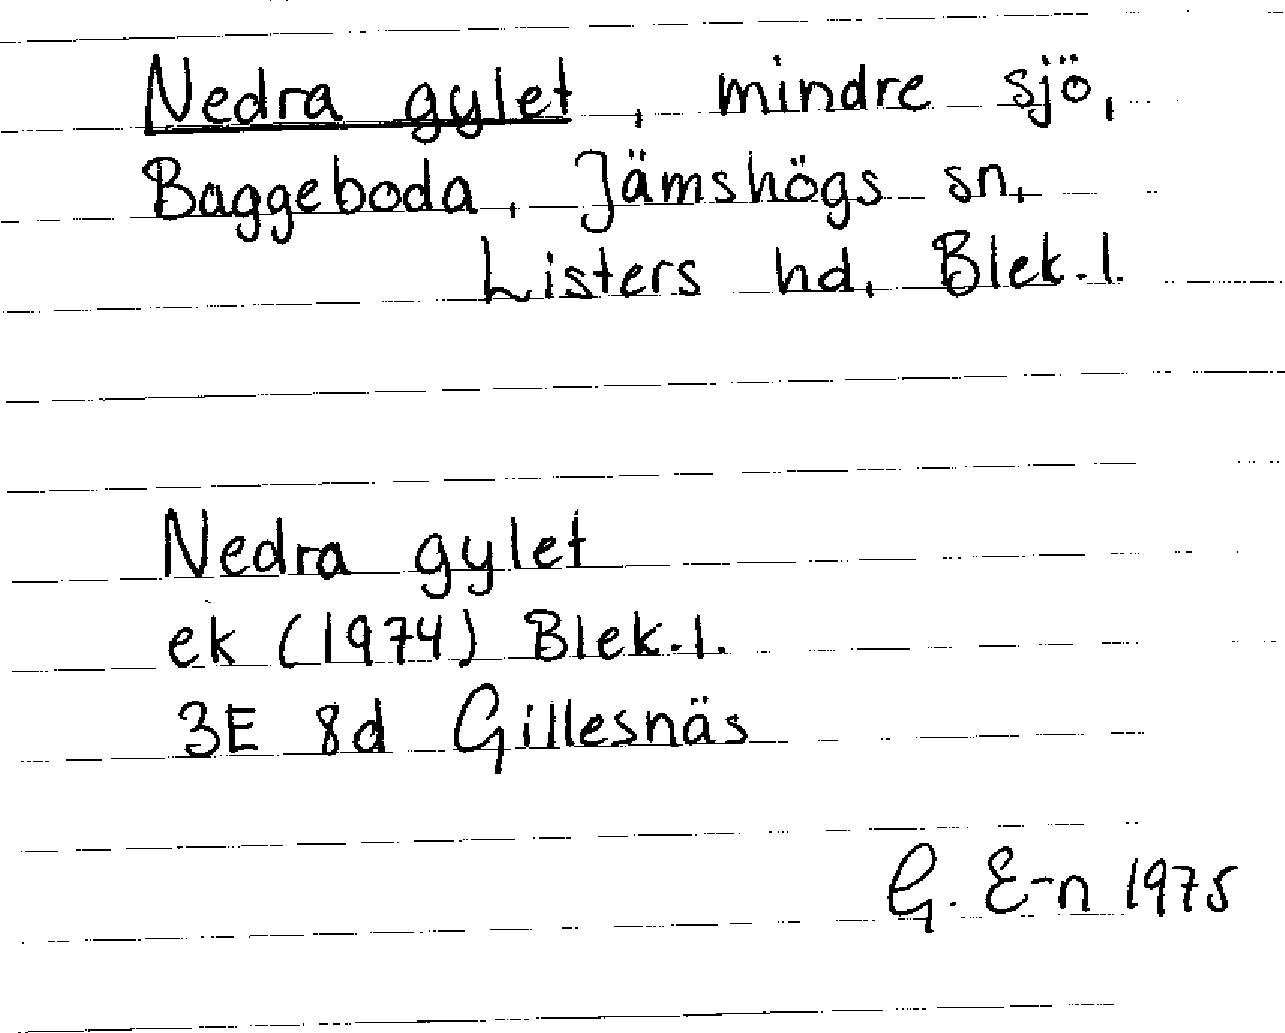 Nedra gylet, mindre sjö,
Baggeboda, Jämshögs sn,
Listers hd, Blek.l.
Nedra gylet
ek (1974) Blek.l.
3E 8d Gillesnäs
G. E-n 1975